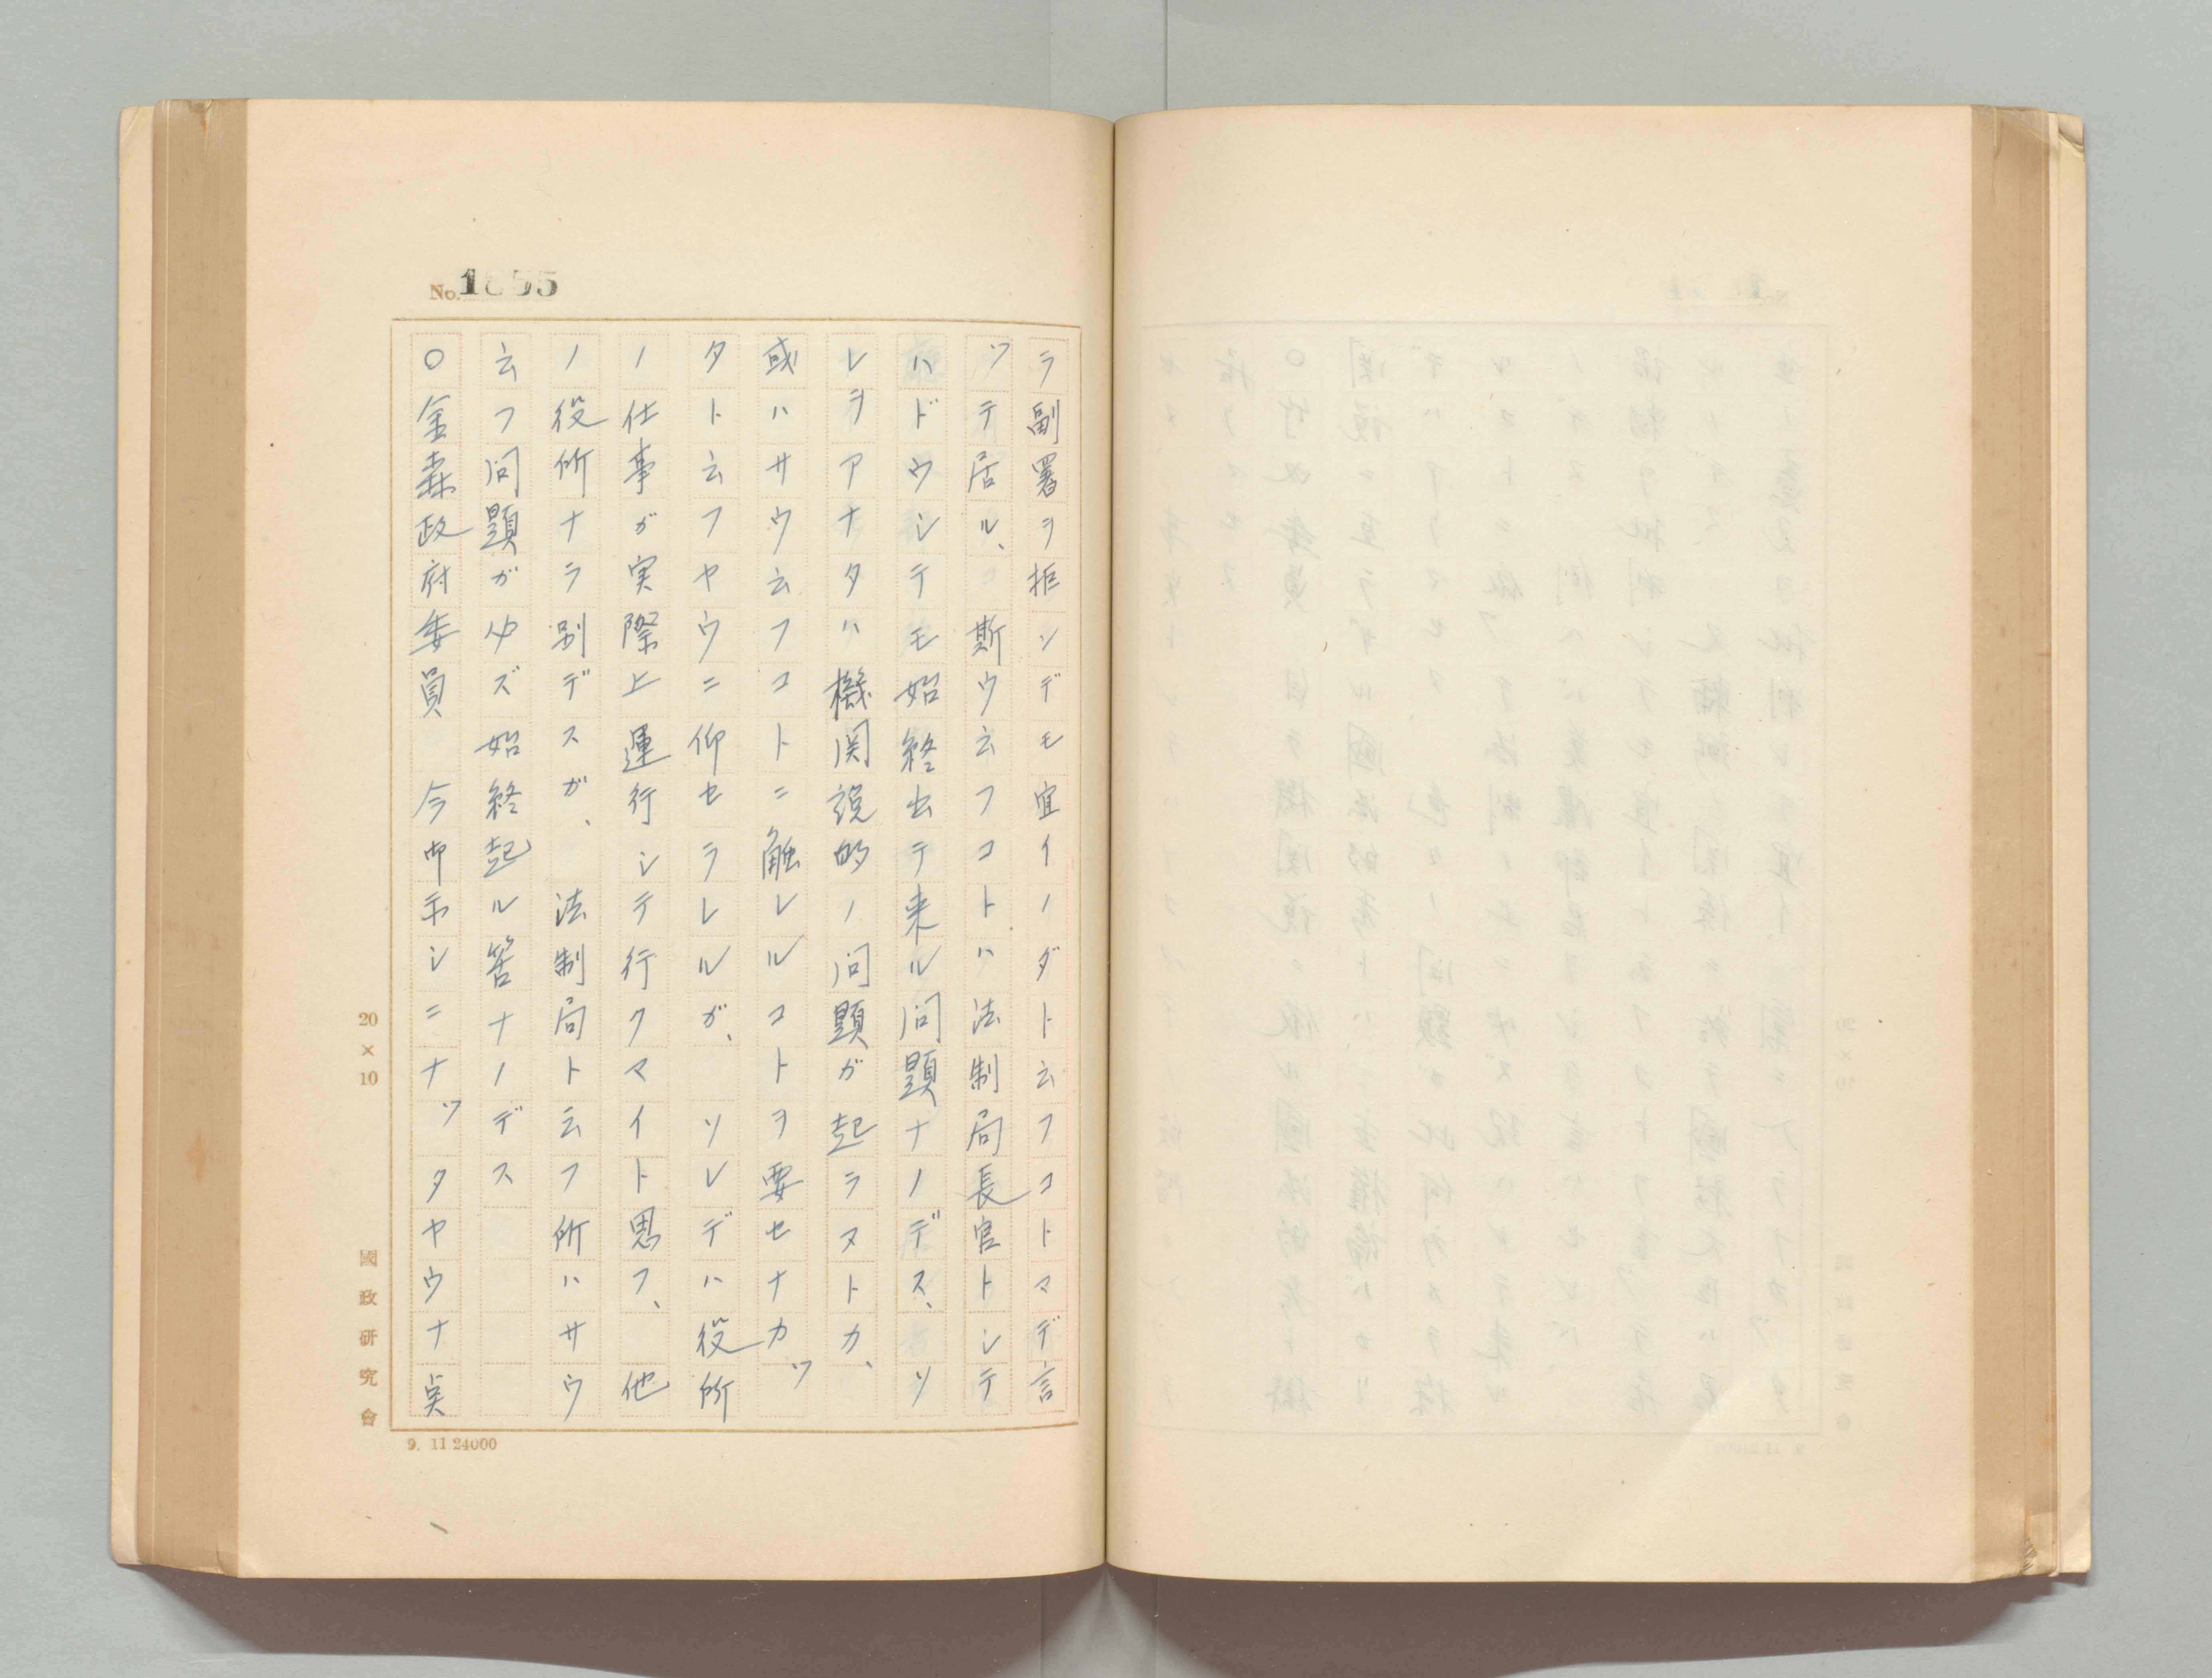 No.1855
ラ副署ヲ拒ンデモ宜イノダト云フコトマデ言
ツテ居ル、斯ウ云フコトハ法制局長官トシテ
ハドウシテモ始終出テ来ル問題ナノデス、ソ
レヲアナタハ機関説的ノ問題ガ起ラヌトカ、
或ハサウ云フコトニ触レルコトヲ要セナカツ
タト云フヤウニ仰セラレルガ、ソレデハ役所
ノ仕事ガ実際上運行シテ行クマイト思フ、他
ノ役所ナラ別デスガ、法制局ト云フ所ハサウ
云フ問題ガ必ズ始終起ル筈ナノデス
○金森政府委員 今御示シニナツタヤウナ点
20×10
國政研究會
9. 11.24000